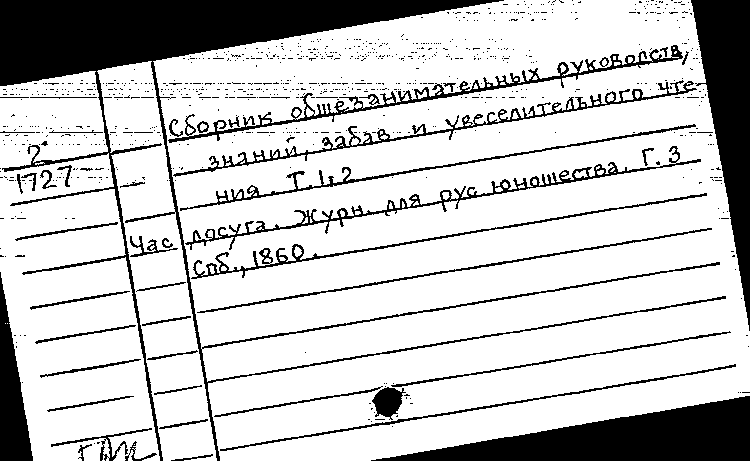 Сборник общезанимательных руководств,
2
1727
знаний, забав и увеселительного чте-
ния. Т. 1, 2
Час досуга. Журн. для рус юношества. Г. 3
Спб., 1860.